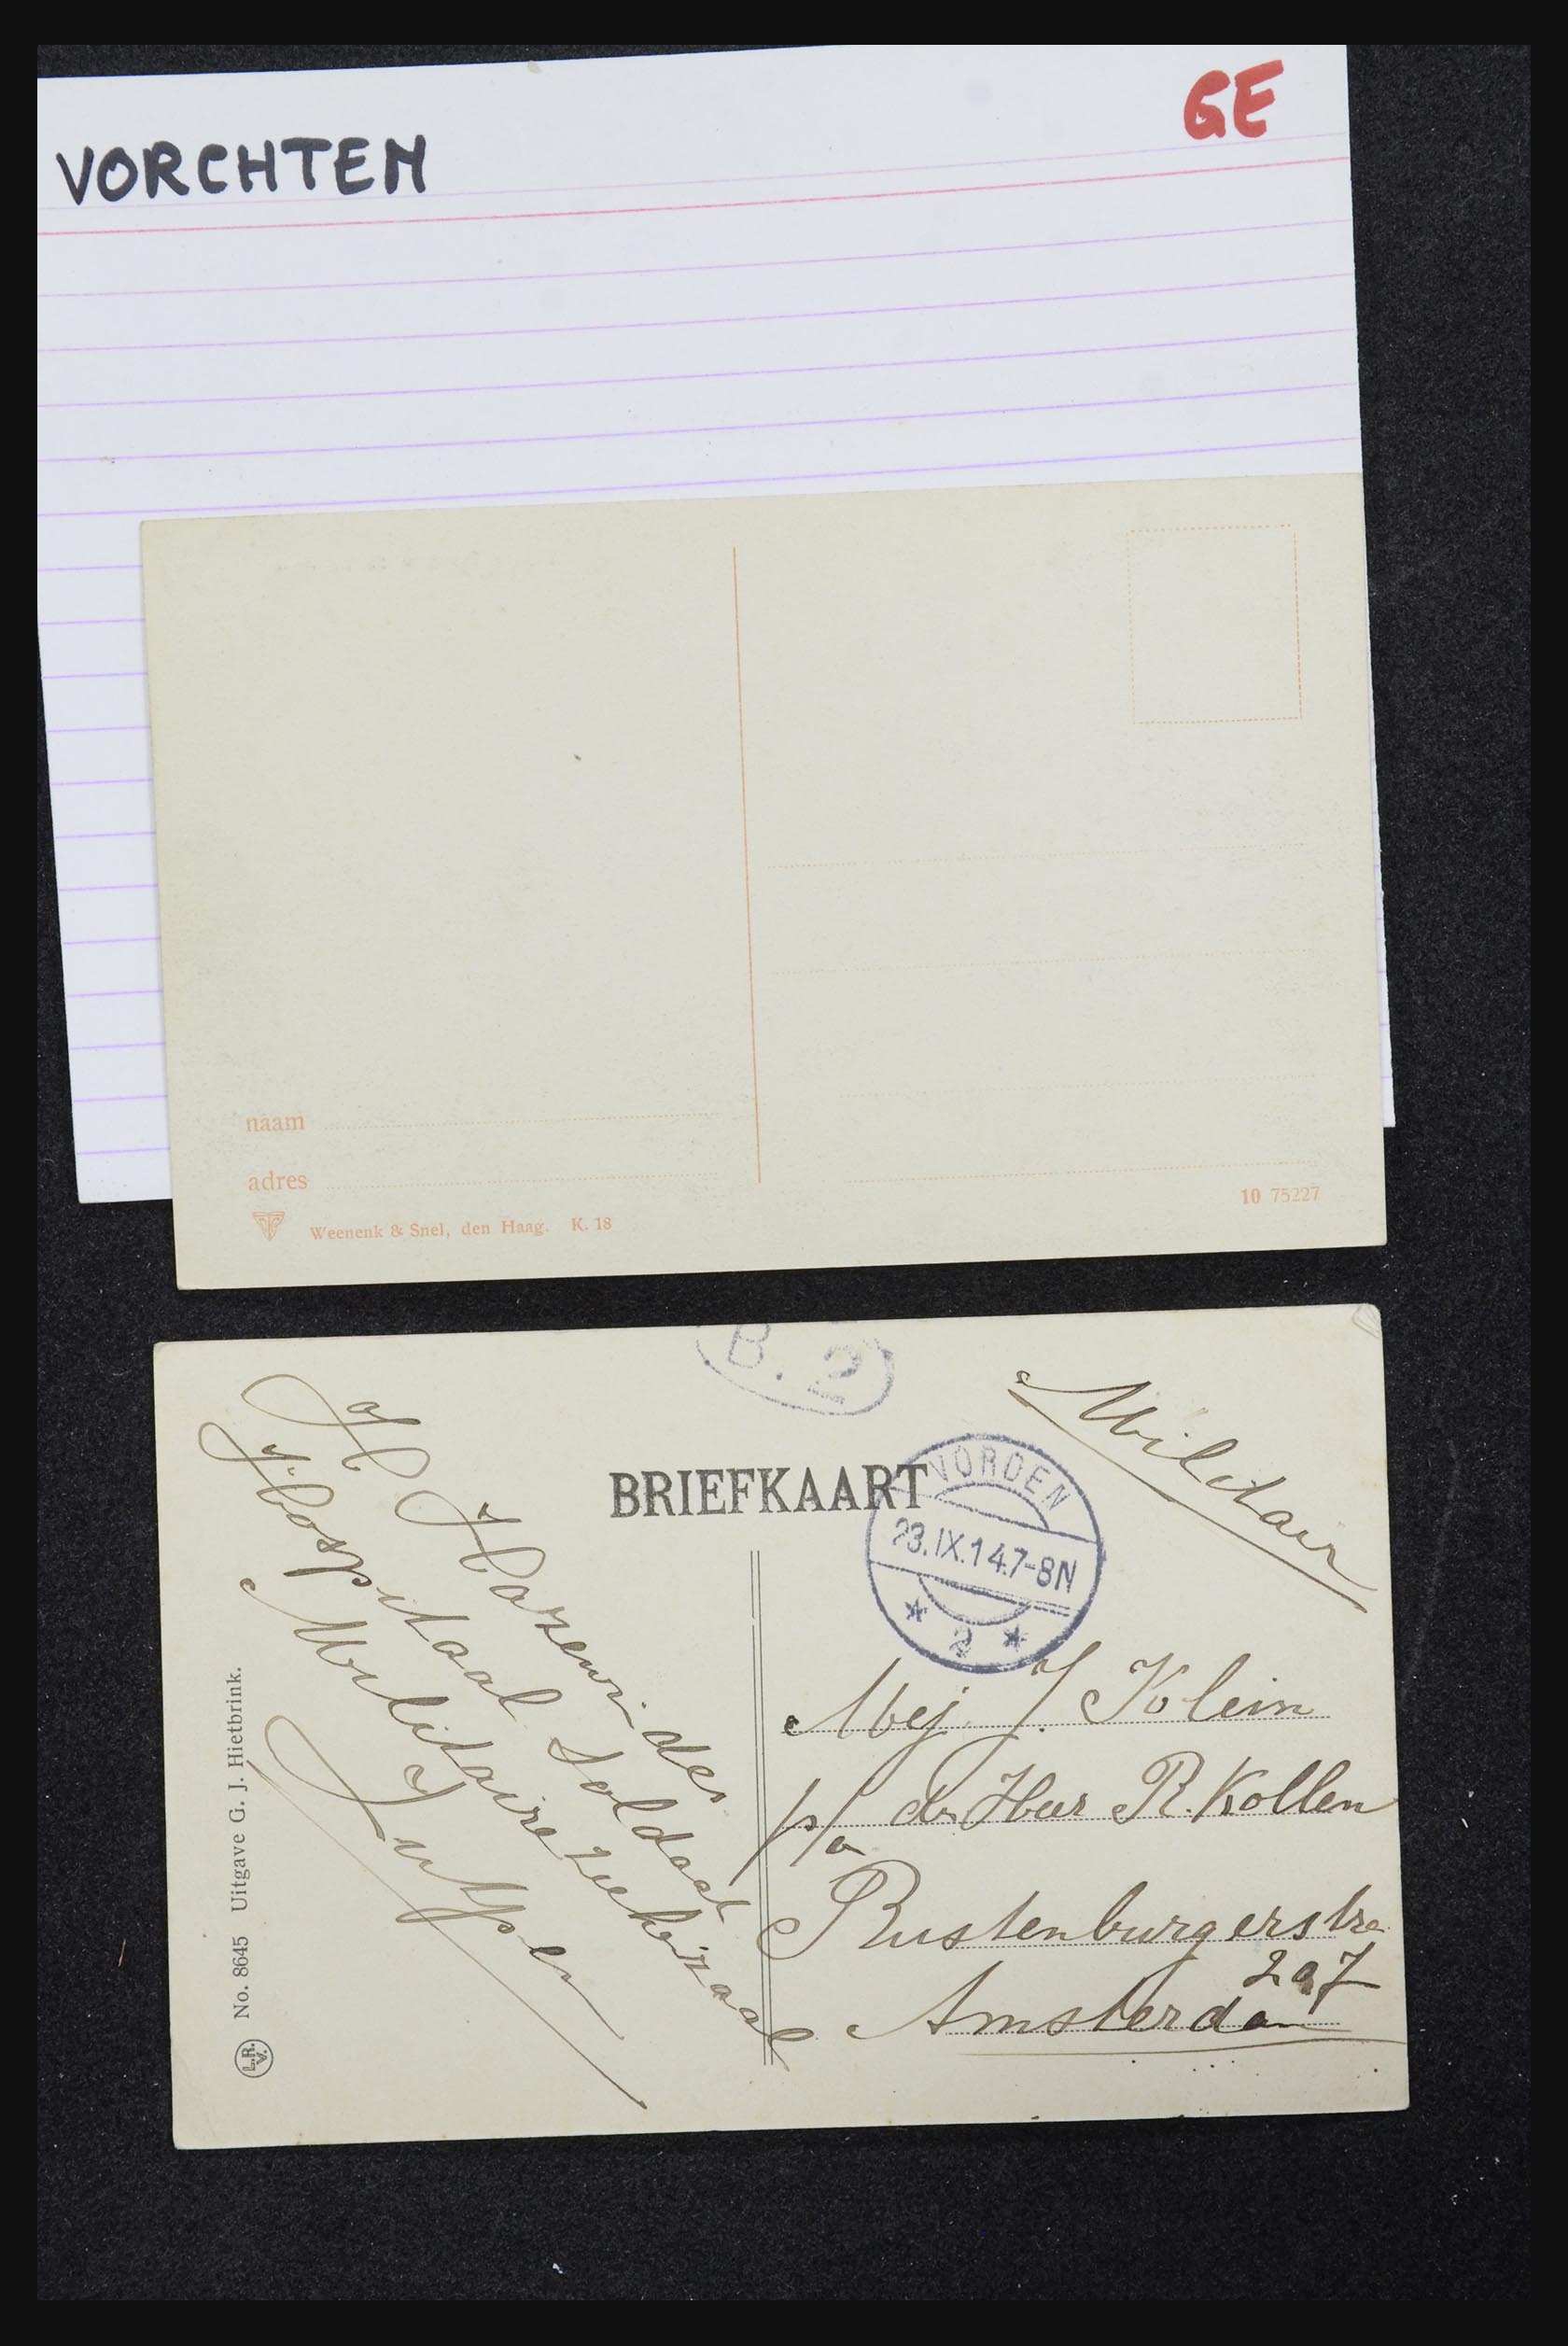 GE
VORCHTEN
naam
adres
Weenenk & Snel, den Haag. K. 18
10 75227
B. 2
Militair
BRIEFKAART
VORDEN
23.IX.14.7-8N
2
H Hazewinder
Hospitaal Soldaat
Militaire Ziekezaal
Zutphen
Mej. J. Klein
p/a den Heer R. Kollen
Rustenburgerstra
207
Amsterdam
L.R.V. No. 8645 Uitgave G. J. Hietbrink.